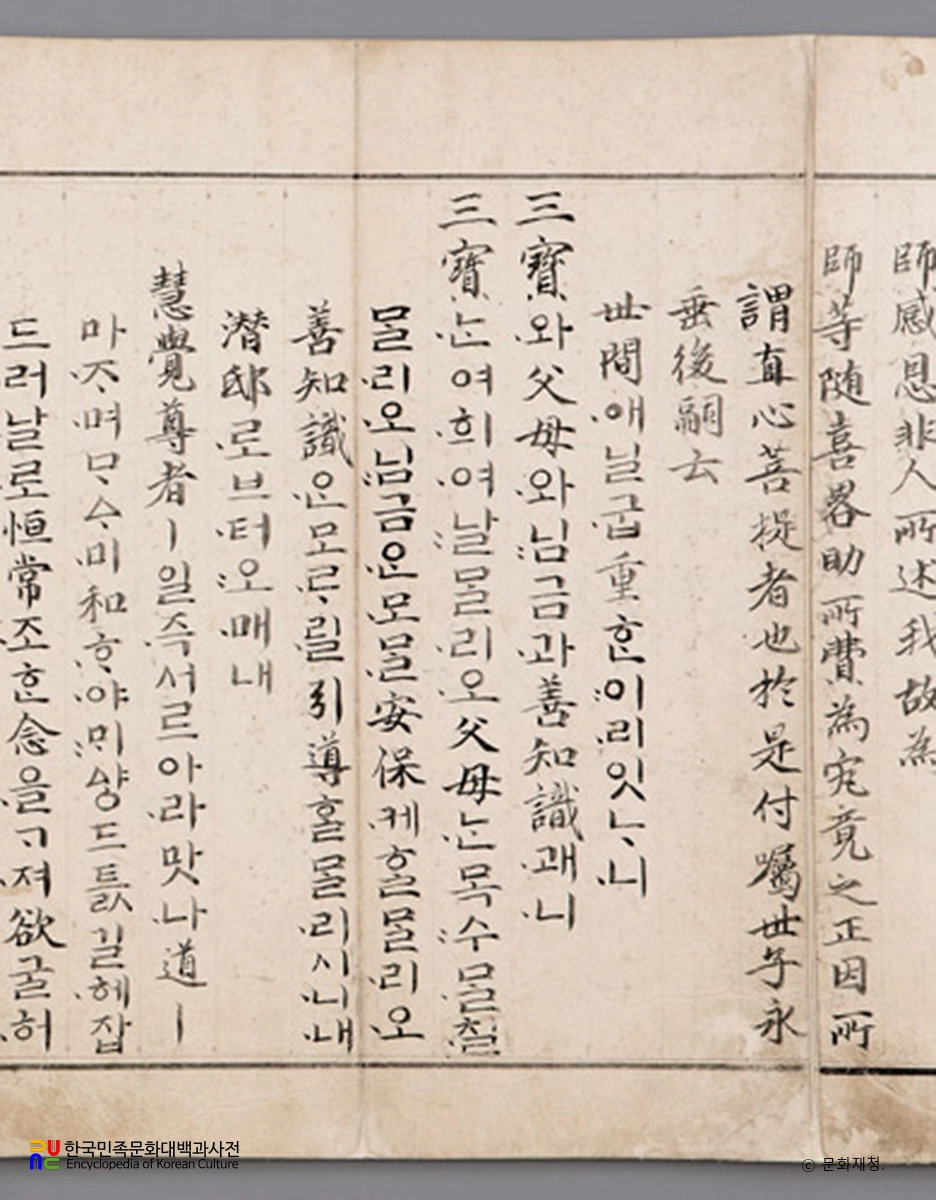 師感恩非人所述我故為
師等随喜畧助所費為究竟之正因所
謂直心菩提者也於是付囑世子永
垂後嗣云
世間애닐굽重ᄒᆞᆫ이리잇ᄂᆞ니
三寶와父母와님금과善知識괘니
三寶ᄂᆞᆫ여희여날믈리오父母ᄂᆞᆫ목수믈칠
믈리오님금은모믈安保케홀믈리오
善知識은모ᄅᆞ릴引導홀믈리시니내
潛邸로브터오매내
慧覺尊者ㅣ일즉서르아라맛나道ㅣ
마ᄌᆞ며ᄆᆞᅀᆞ미和ᄒᆞ야미샹드틄길헤잡
드러날로恒常조ᄒᆞᆫ念을ᄀᆞ져欲굴허
한국민족문화대백과사전
Encyclopedia of Korean Culture
ⓒ 문화재청.